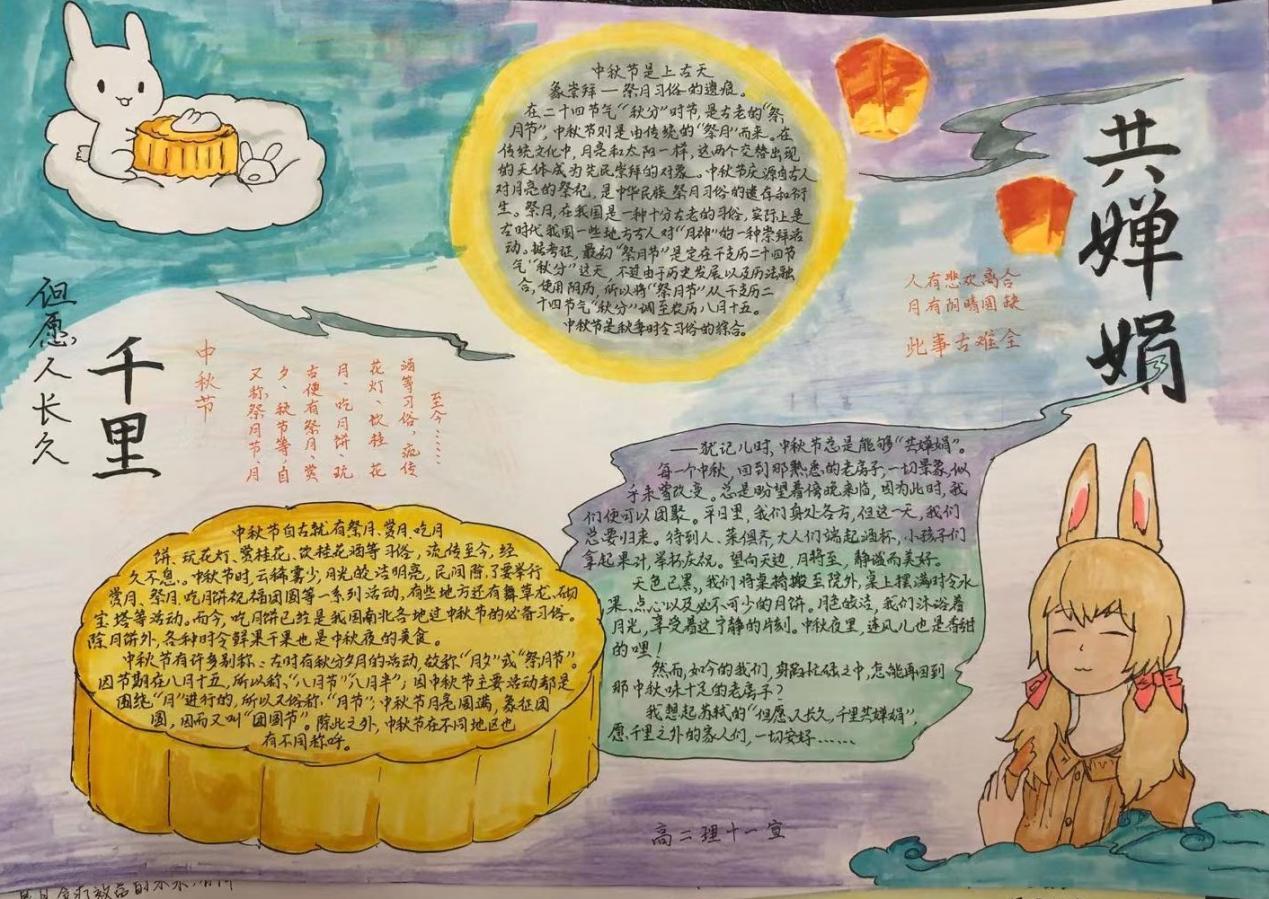 但愿人长久
千里
共婵娟
中秋节是上古天
象崇拜一祭月习俗的遗痕。
在二十四节气“秋分”时节,是古老的“祭
月节”,中秋节则是由传统的“祭月”而来。在
传统文化中,月亮和太阳一样,这两个交替出现
的天体成为先民崇拜的对象。中秋节庆源自古人
对月亮的祭祀,是中华民族祭月习俗的遗存和衍
生。祭月,在我国是一种十分古老的习俗,实际上是
古时代我国一些地方古人对“月神”的一种崇拜活
动。据考证,最初“祭月节”是定在干支历二十四节
气“秋分”这天,不过由于历史发展以及历法融
合,使用阴历,所以将“祭月节”从干支历二
十四节气“秋分”调至农历八月十五。
中秋节是秋季时令习俗的综合。
人有悲欢离合
月有阴晴圆缺
此事古难全
中秋节
又称祭月节、月
夕、秋节等,自
古便有祭月、赏
月、吃月饼、玩
花灯、饮桂花
酒等习俗,流传
至今……
中秋节自古就有祭月、赏月、吃月
饼、玩花灯、赏桂花、饮桂花酒等习俗,流传至今,经
久不息。中秋节时,云稀雾少,月光皎洁明亮,民间除了要举行
赏月、祭月、吃月饼祝福团圆等一系列活动,有些地方还有舞草龙、砌
宝塔等活动。而今,吃月饼已经是我国南北各地过中秋节的必备习俗。
除月饼外,各种时令鲜果干果也是中秋夜的美食。
中秋节有许多别称:古时有秋分夕月的活动,故称“月夕”或“祭月节”。
因节期在八月十五,所以称,“八月节”“八月半”;因中秋节主要活动都是
围绕“月”进行的,所以又俗称,“月节”;中秋节月亮圆满,象征团
圆,因而又叫“团圆节”。除此之外,中秋节在不同地区也
有不同称呼。
——犹记儿时,中秋节总是能够“共婵娟”。
每一个中秋,回到那熟悉的老房子,一切景象,似
乎未曾改变。总是盼望着傍晚来临,因为此时,我
们便可以团聚。平日里,我们身处各方,但这一天,我们
总要归来。待到人、菜俱齐,大人们端起酒杯,小孩子们
拿起果汁,举杯庆祝。望向天边,月将至,静谧而美好。
天色已黑,我们将桌椅搬至院外,桌上摆满时令水
果、点心以及必不可少的月饼。月色皎洁,我们沐浴着
月光,享受着这宁静的片刻。中秋夜里,连风儿也是香甜
的嘿!
然而,如今的我们,身陷忙碌之中,怎能再回到
那中秋味十足的老房子?
我想起苏轼的“但愿人长久,千里共婵娟”,
愿千里之外的家人们,一切安好……
高二理十一宣